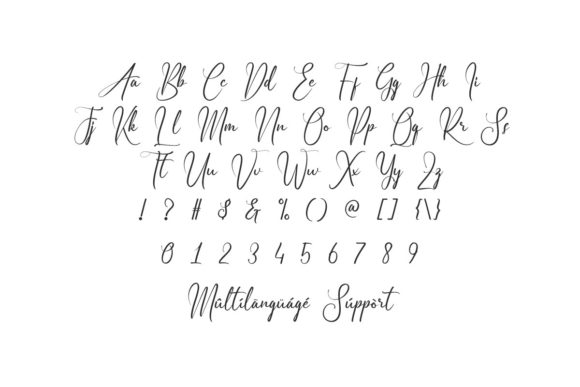 Aa Bb Cc Dd Ee Ff Gg Hh Ii
Jj Kk Ll Mm Nn Oo Pp Qq Rr Ss
Tt Uu Vv Ww Xx Yy Zz
! ? # $ & % () @ [] {\}
0 1 2 3 4 5 6 7 8 9
Mûltílängüágé Súppòrt